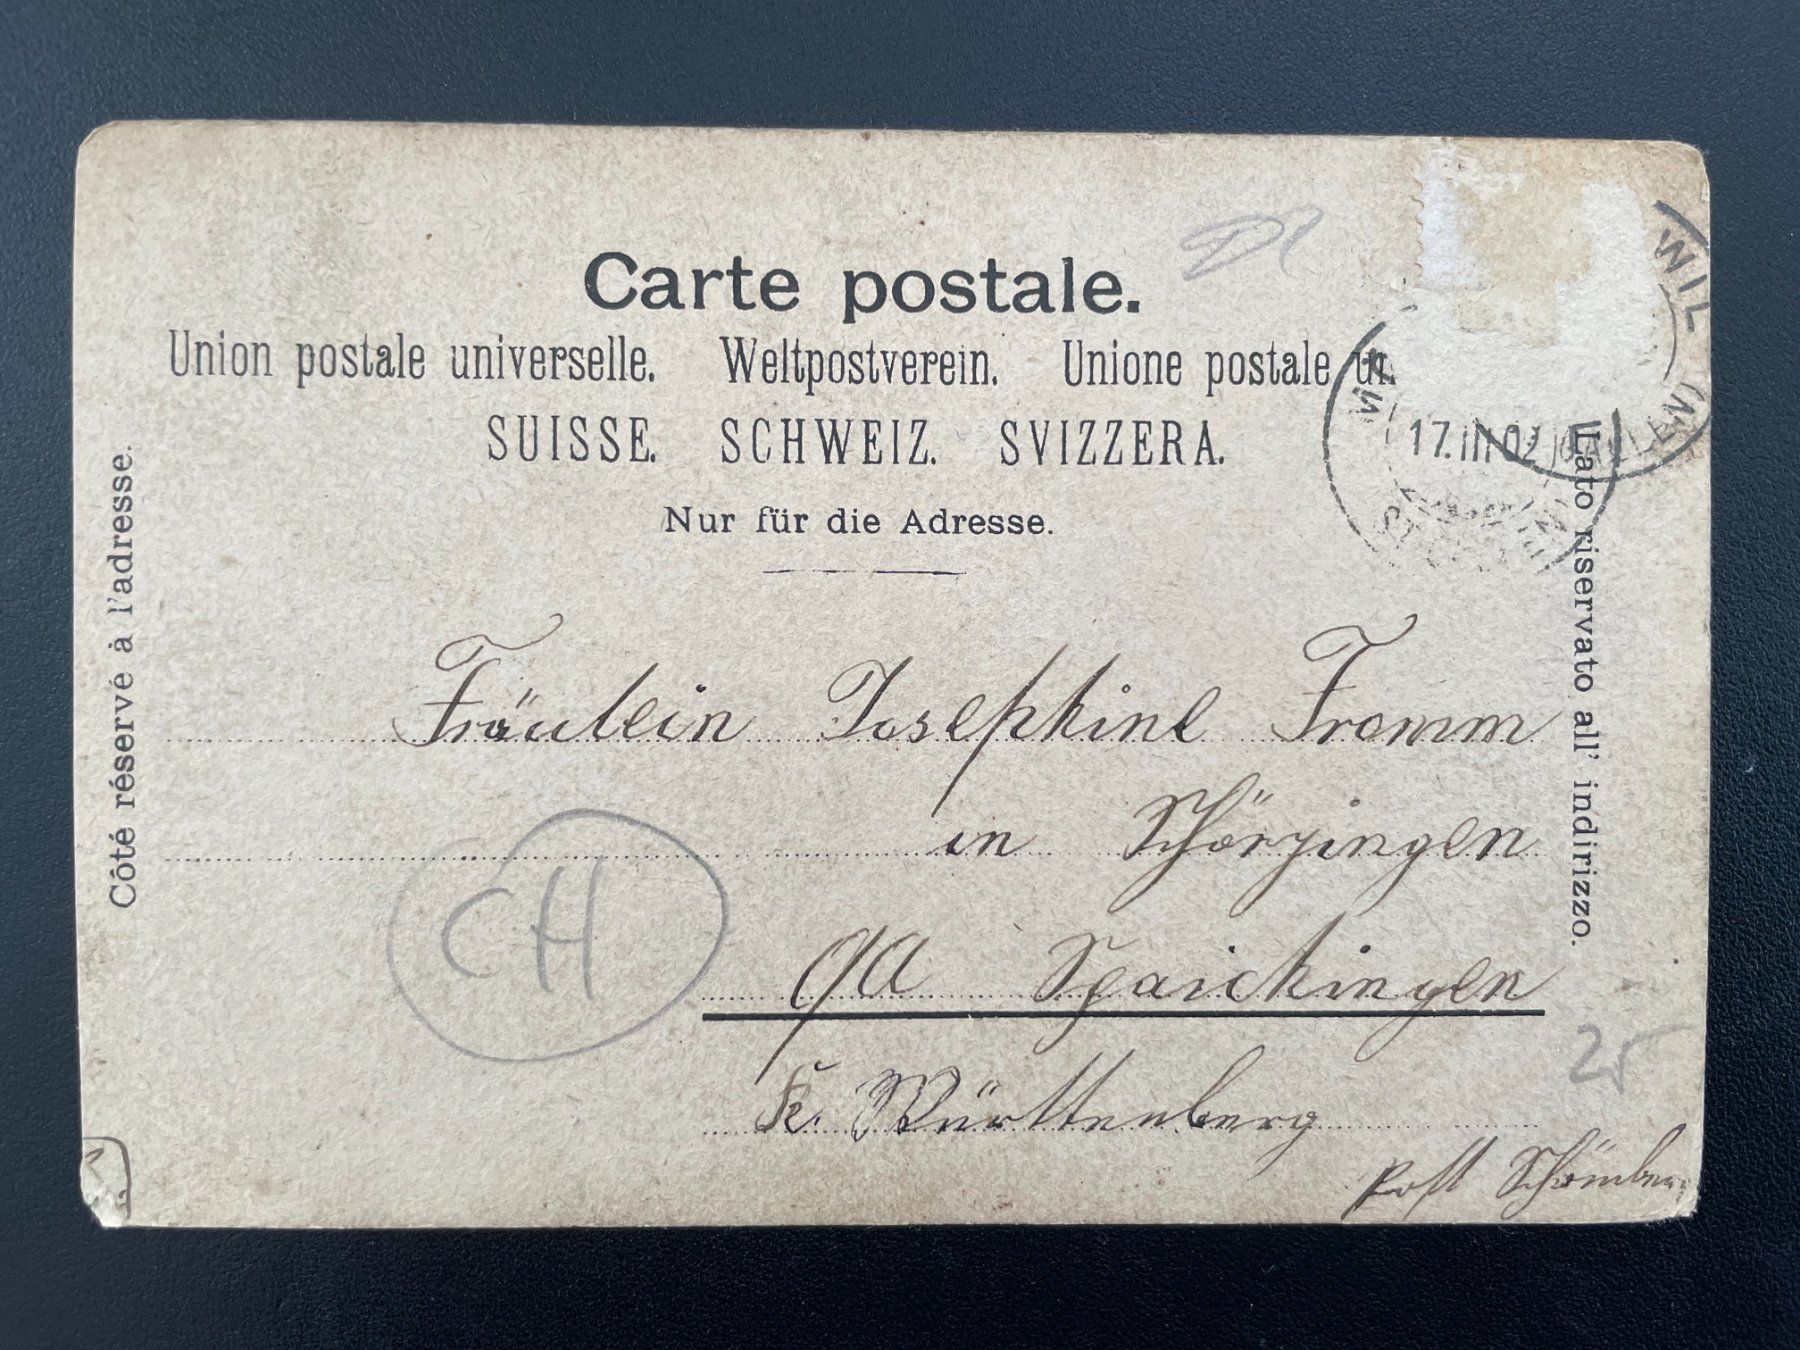 Carte postale.
Union postale universelle. Weltpostverein. Unione postale un.
SUISSE. SCHWEIZ. SVIZZERA.
Nur für die Adresse.
Côté réservé à l'adresse.
Lato riservato all' indirizzo.
WIL
17.III.02
Fräulein Josephine Fromm
in Schörzingen
OA Spaichingen
K. Württemberg
Post Schömberg
CH
25